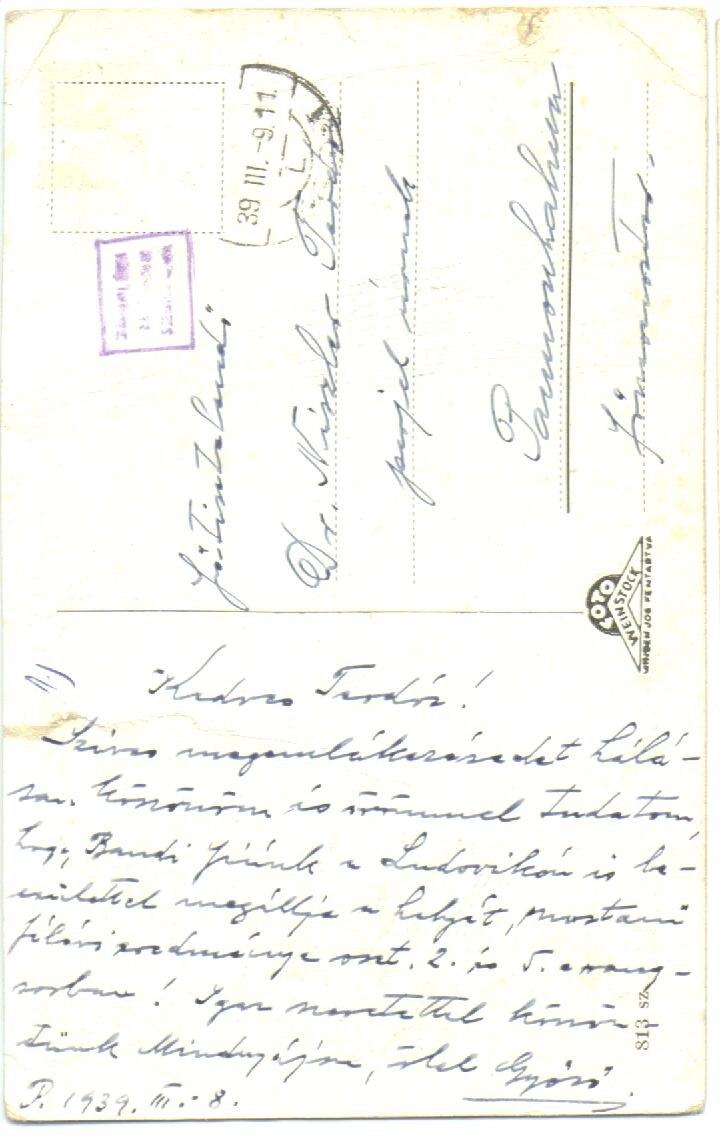 39 III. -9. 11
Főtisztelendő
Dr. Niszler Teodóz
perjel úrnak
Pannonhalma
LOTO
WEINSTOCK
MINDEN JOG FENTARTVA
Kedves Teodóz!
Szives megemlékezésedet hálá-
san köszönöm és örömmel tudatom,
hogy Bandi fiúnk a Ludovikán is be-
csülettel megállja a helyét, mostani
félévi eredménye oszt. 2. és 5. a rang-
sorban! Igaz szeretettel köszön-
tünk Mindnyájan, ölel Győző
P. 1939. III. - 8.
813 sz.